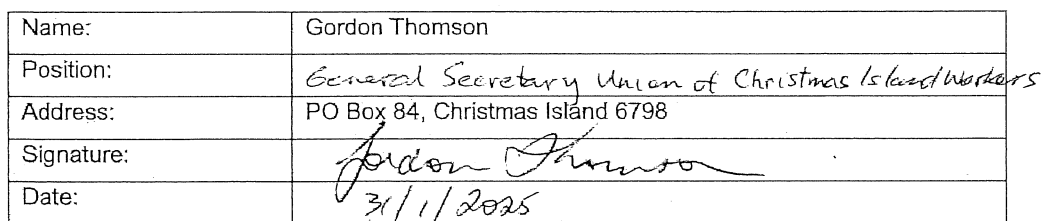 Name: Gordon Thomson
Position: General Secretary Union of Christmas Island Workers
Address: PO Box 84, Christmas Island 6798
Signature: Gordon Thomson
Date: 31/1/2025